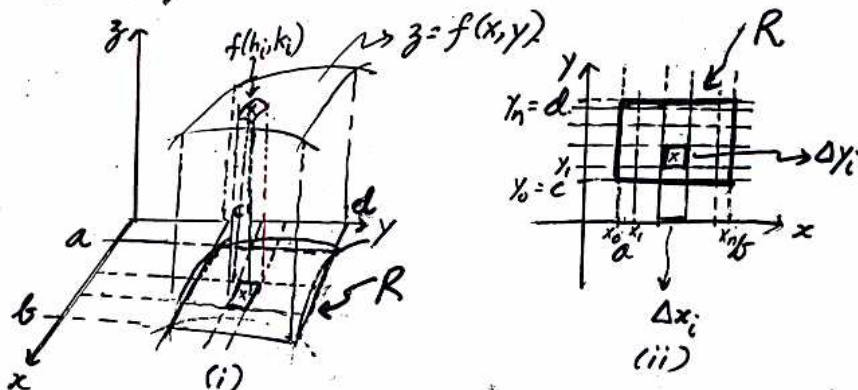 z
f(hᵢ,kᵢ)
z = f(x,y)
a
b
x
c
d
y
R
x
(i)
y
R
yₙ = d
y₁
y₀ = c
x
Δyᵢ
x₀
a
x₁
xₙ
b
x
Δxᵢ
(ii)